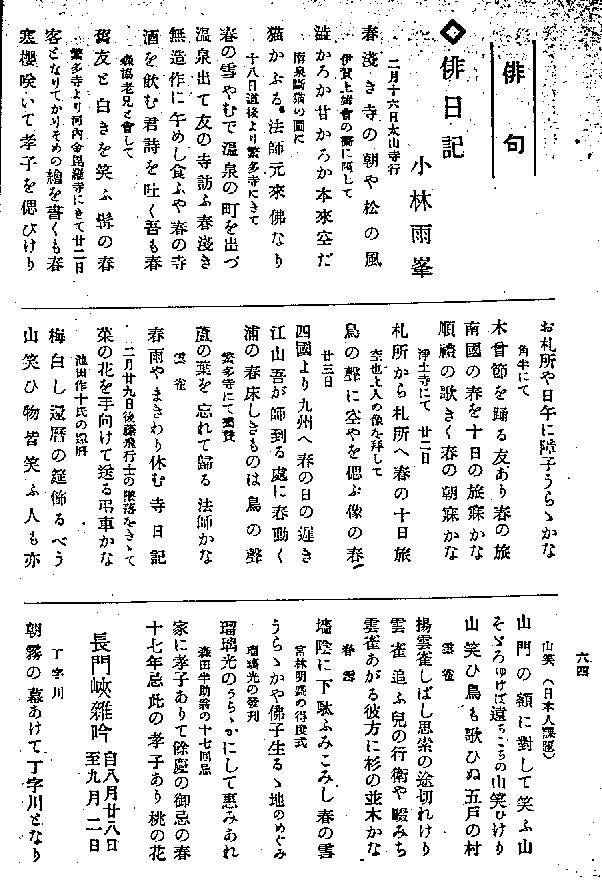 俳句
俳日記
小林雨峯
二月十六日太山寺行
春淺き寺の朝や松の風
澁かろか甘かろか本來空だ
南泉斷猫の圖に
猫かぶる法師元來佛なり
十八日道後より繁多寺にきて
春の雪やむで溫泉の町を出づ
溫泉出て友の寺訪ふ春淺き
無造作に午めし食ふや春の寺
酒を飮む君詩を吐く吾も春
森脇老兄と會して
舊友と白きを笑ふ髯の春
繁多寺より河內金毘羅寺にきて廿二日
客となりてかりそめの繪を書くも春
寒櫻咲いて孝子を偲びけり
お札所や日午に障子うらゝかな
角半にて
木曾節を踊る友あり春の旅
南國の春を十日の旅寐かな
順禮の歌きく春の朝寐かな
淨土寺にて 廿二日
札所から札所へ春の十日旅
空也上人の像を拜して
鳥の聲に空やを偲ぶ像の春
廿三日
四國より九州へ春の日の遲き
江山吾が師到る處に春動く
浦の春床しきものは鳥の聲
繁多寺にて畫賛
蘆の葉を忘れて歸る法師かな
雲雀
春雨やまきわり休む寺日記
二月廿九日後藤飛行士の墜落をきゝて
菜の花を手向けて送る弔車かな
池田作十氏の還曆
梅白し還曆の筵飾るべう
山笑ひ物皆笑ふ人も亦
六四
山笑(日本人課題)
山門の額に對して笑ふ山
そゞろゆけば遠ちこちの山笑ひけり
山笑ひ鳥も歌ひぬ五戶の村
雲雀
揚雲雀しばし思索の途切れけり
雲雀追ふ兒の行衞や畷みち
雲雀あがる彼方に杉の並木かな
春雪
墻陰に下駄ふみこみし春の雪
宮林明彥の得度式
うらゝかや佛子生るゝ地のめぐみ
瑠璃光の發刋
瑠璃光のうらゝかにして惠みあれ
森田半助翁の十七回忌
家に孝子ありて餘慶の御忌の春
十七年忌此の孝子あり桃の花
長門峽雜吟
自八月廿八日
至九月二日
丁字川
朝霧の幕あけて丁字川となり